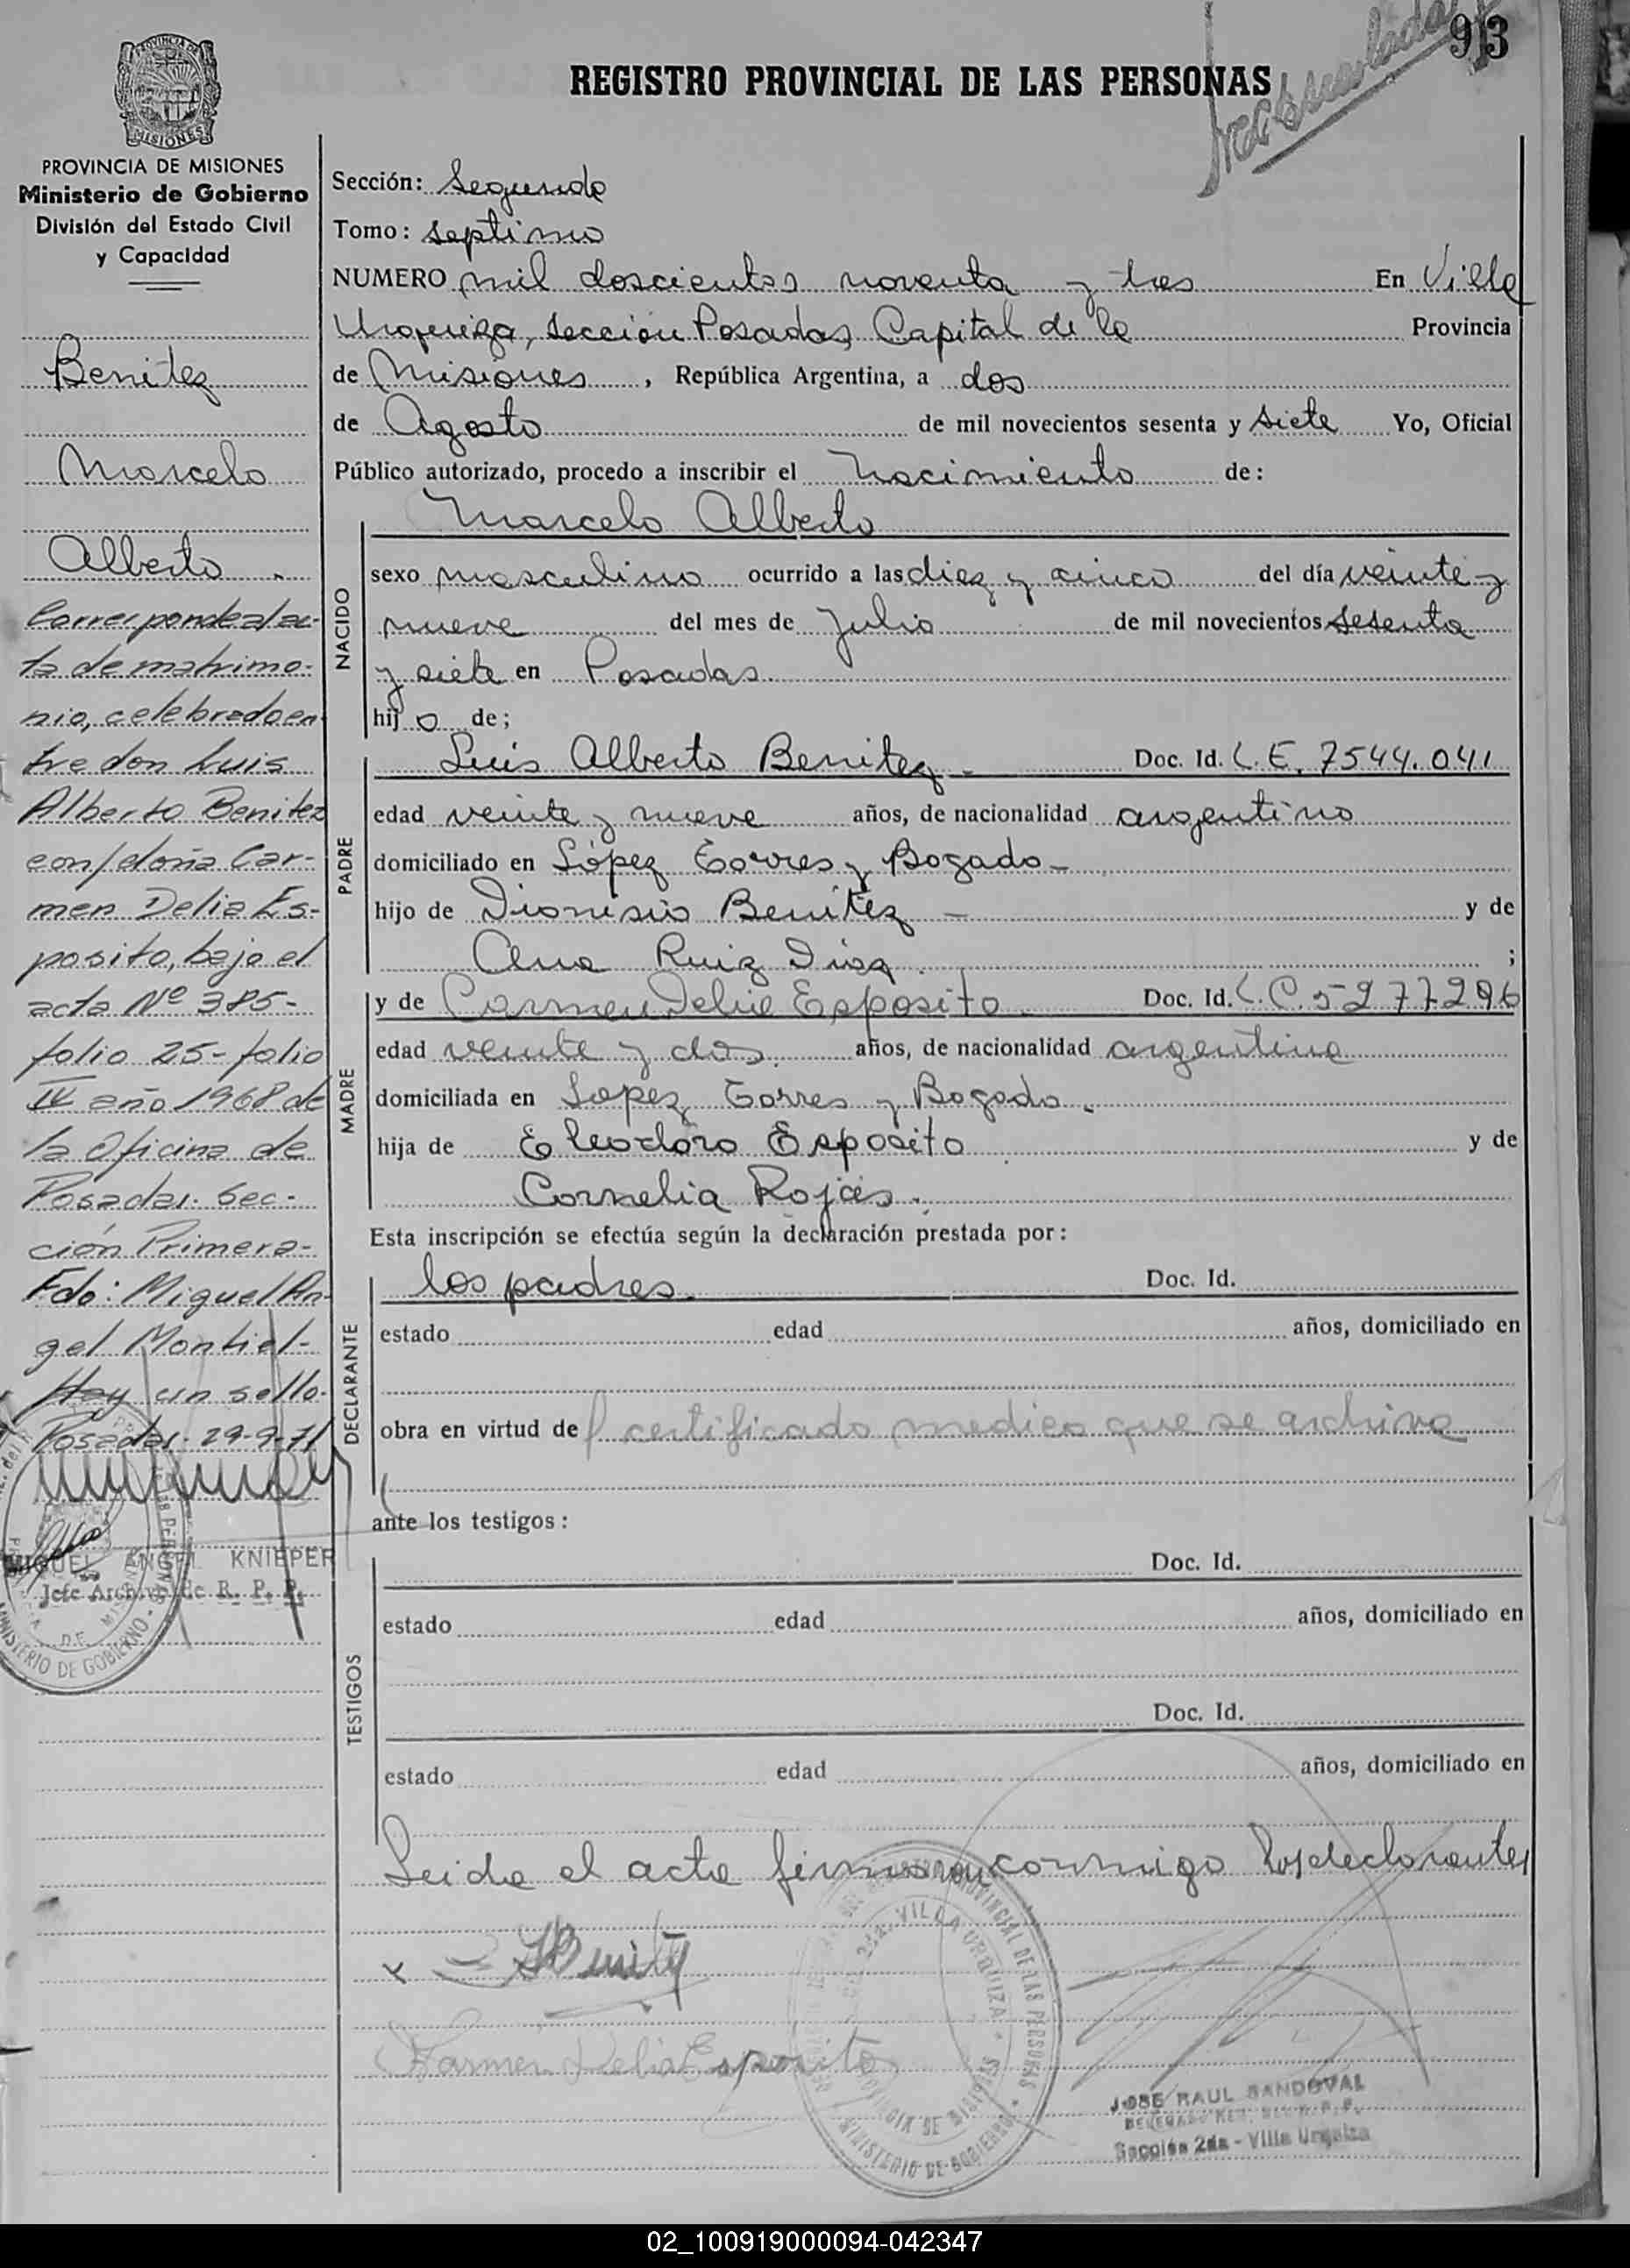 93
REGISTRO PROVINCIAL DE LAS PERSONAS
PROVINCIA DE
MISIONES
PROVINCIA DE MISIONES
Ministerio de Gobierno
División del Estado Civil
y Capacidad
Benitez
Marcelo
Alberto.
Corresponde al ac-
ta de matrimo-
nio, celebrado en
tre don Luis
Alberto Benitez
con doña Car-
men Delia Es-
posito, bajo el
acta Nº 385-
folio 25- folio
IV año 1968 de
la Oficina de
Posadas. Sec-
ción Primera-
Fdo: Miguel An-
gel Montiel-
Hay un sello.
Posadas. 29-9-71
MIGUEL ANGEL KNIEPER
Jefe Archivo de R. P. P.
MINISTERIO DE GOBIERNO
Sección: Segunda
Tomo: septimo
NUMERO mil doscientos noventa y tres En Villa
Urquiza, sección Posadas, Capital de la Provincia
de Misiones, República Argentina, a dos
de Agosto de mil novecientos sesenta y siete Yo, Oficial
Público autorizado, procedo a inscribir el nacimiento de:
NACIDO
Marcelo Alberto
sexo masculino ocurrido a las diez y cinco del día veinte y
nueve del mes de Julio de mil novecientos sesenta
y siete en Posadas.
hijo de;
PADRE
Luis Alberto Benitez - Doc. Id. L.E. 7544.041
edad veinte y nueve años, de nacionalidad argentino
domiciliado en López Torres y Bogado -
hijo de Dionisio Benitez - y de
Ana Ruiz Diaz. ;
MADRE
y de Carmen Delia Esposito. Doc. Id. L.C. 5277296
edad veinte y dos. años, de nacionalidad argentina
domiciliada en Lopez Torres y Bogado.
hija de Eleodoro Esposito y de
Cornelia Rojas.
Esta inscripción se efectúa según la declaración prestada por:
DECLARANTE
los padres. Doc. Id.
estado edad años, domiciliado en
obra en virtud del certificado medico que se archiva
ante los testigos:
TESTIGOS
Doc. Id.
estado edad años, domiciliado en
Doc. Id.
estado edad años, domiciliado en
Leida el acta firman conmigo los declarantes
x Benitez
Carmen Delia Esposito
PROVINCIAL DE LAS PERSONAS
2da. VILLA URQUIZA
PROVINCIA DE MISIONES
MINISTERIO DE GOBIERNO
JOSE RAUL SANDOVAL
Sección 2da - Villa Urquiza
02_100919000094-042347